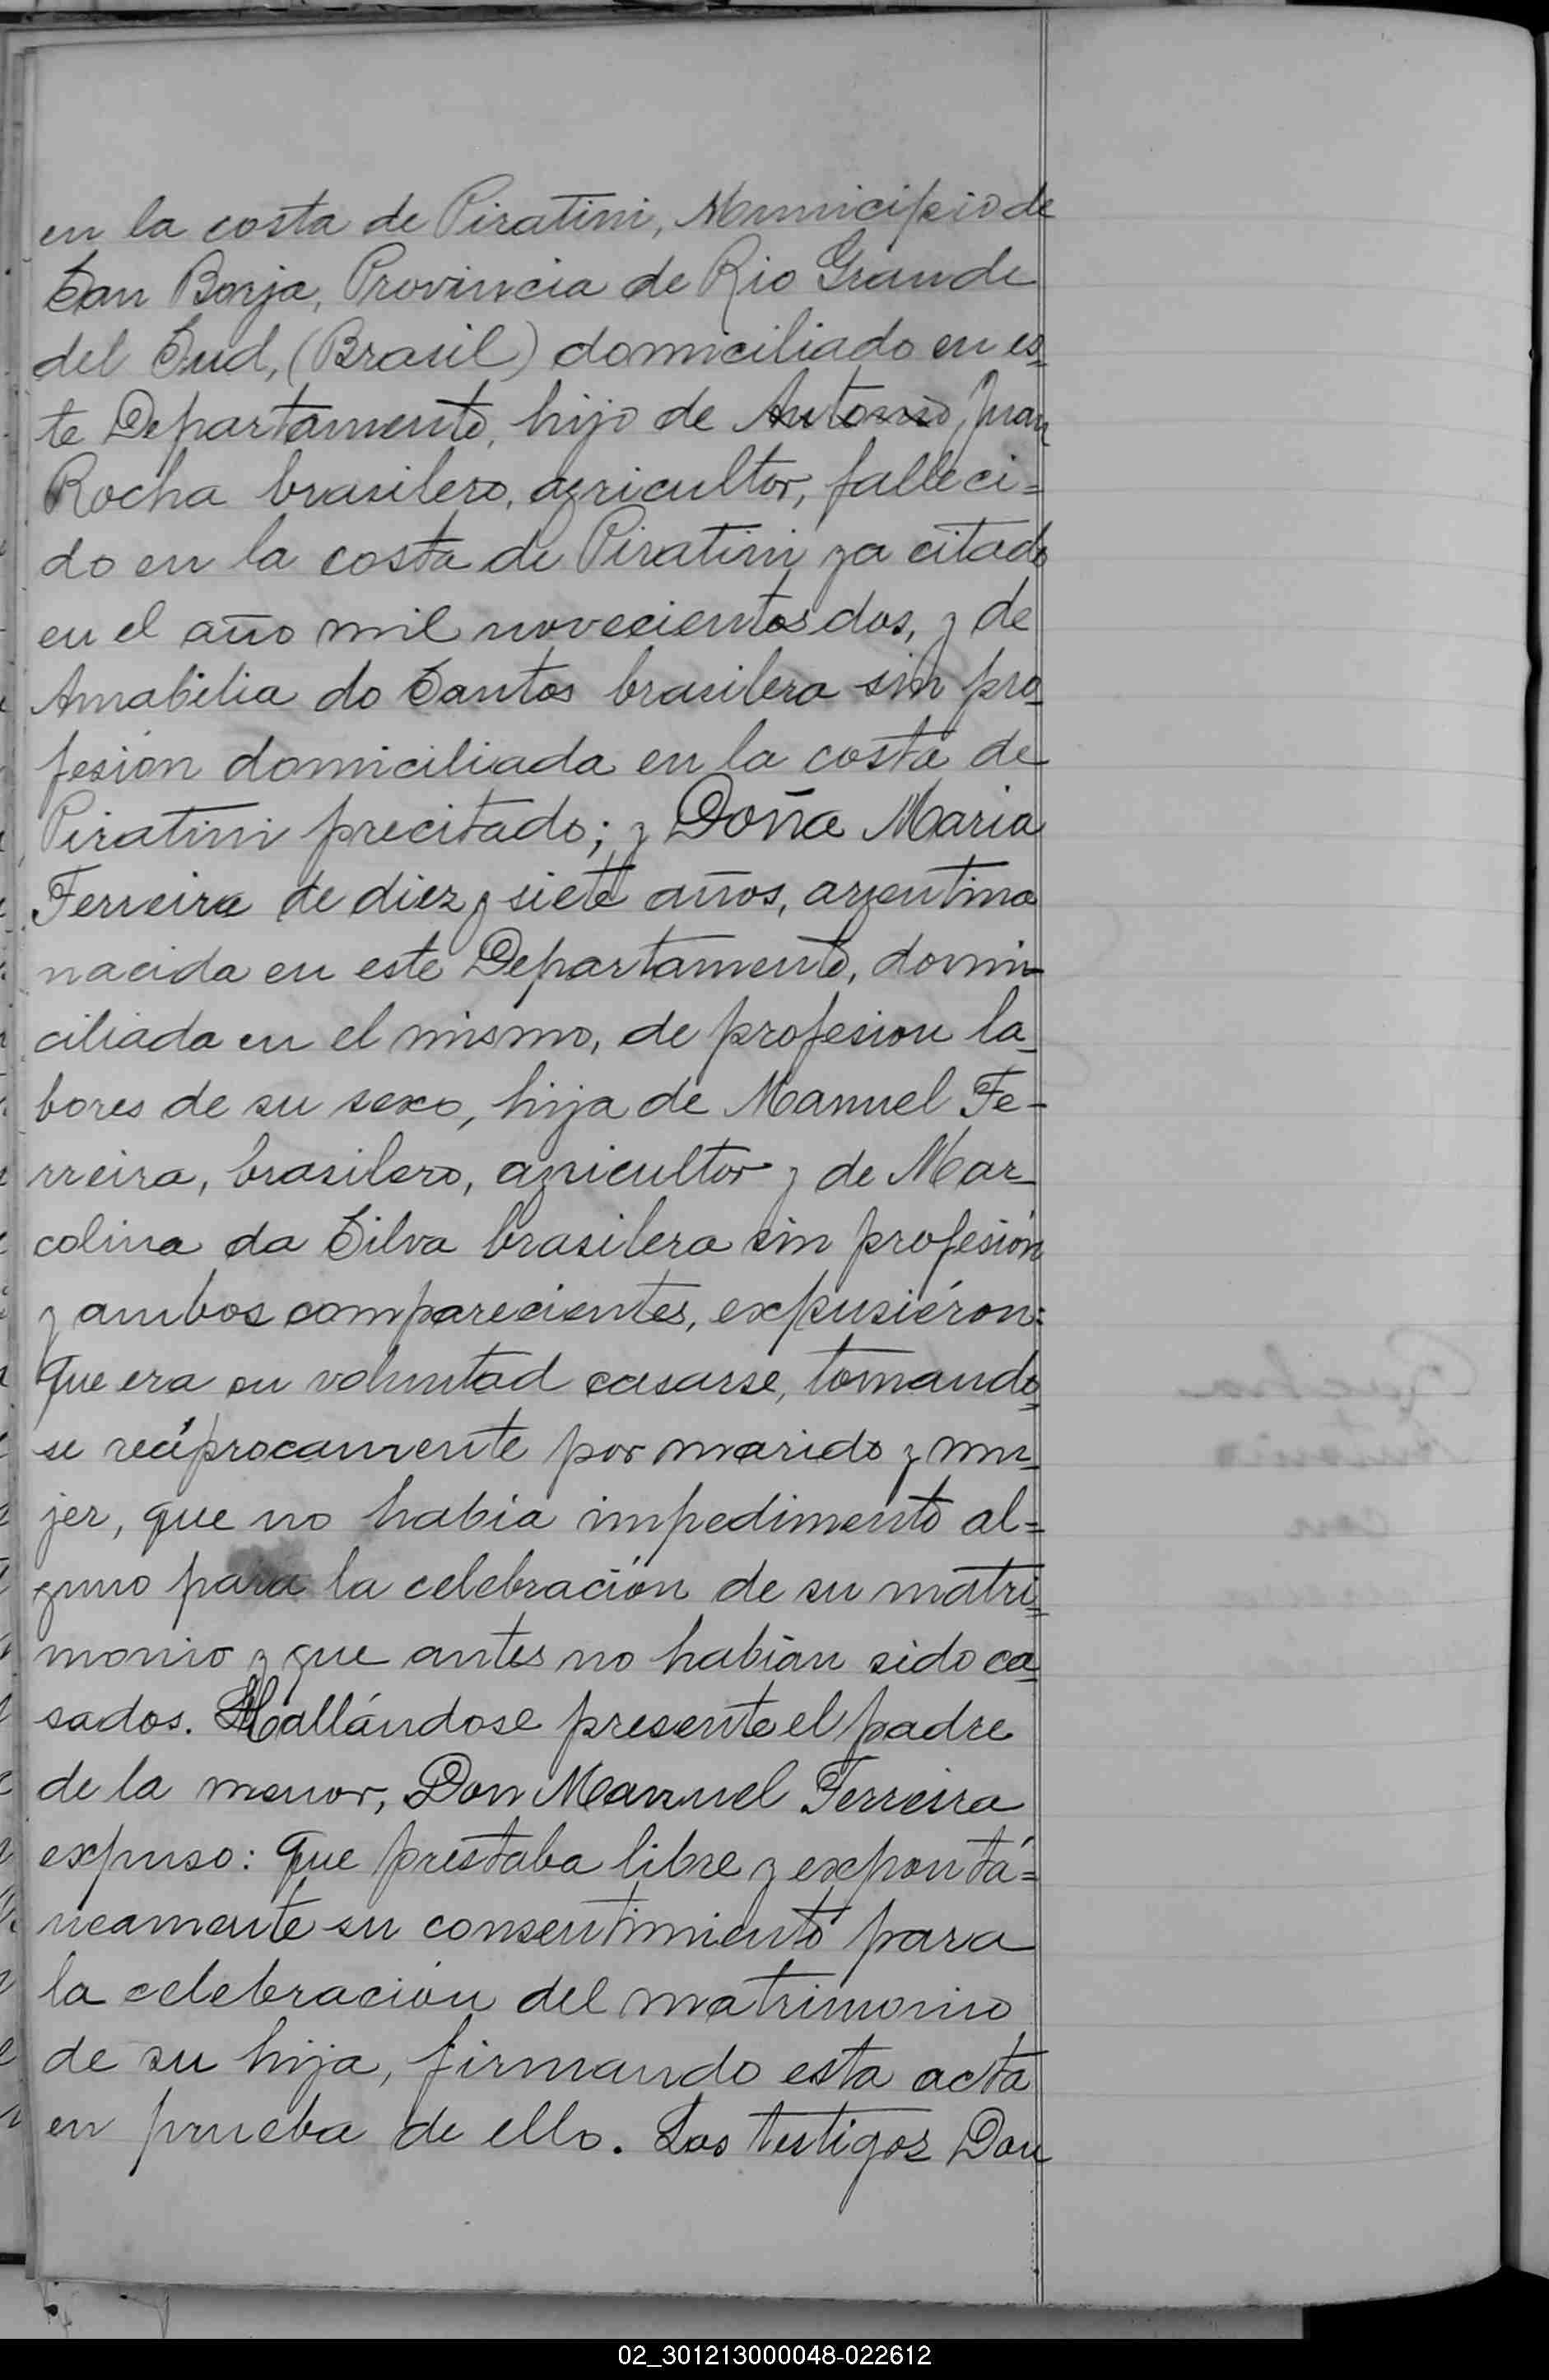 en la costa de Piratini, Municipio de
San Borja, Provincia de Rio Grande
del Sud, (Brasil) domiciliado en es-
te Departamento, hijo de Antonio, Juan
Rocha brasilero, agricultor, falleci=
do en la costa de Piratini ya citado
en el año mil novecientos dos, y de
Amabilia do Santos brasilera sin pro-
fesión domiciliada en la costa de
Piratini precitado; y Doña Maria
Ferreira de diez y siete años, argentina
nacida en este Departamento, domi-
ciliada en el mismo, de profesion la-
bores de su sexo, hija de Manuel Fe-
rreira, brasilero, agricultor y de Mar-
colina da Silva brasilera sin profesión
y ambos comparecientes, expusiéron:
que era su voluntad casarse, tomando-
se recíprocamente por marido y mu-
jer, que no habia impedimento al=
guno para la celebración de su matri=
monio y que antes no habián sido ca-
sados. Hallándose presente el padre
de la menor, Don Manuel Ferreira
expuso: que prestaba libre y expontá=
neamente su consentimiento para
la celebración del matrimonio
de su hija, firmando esta acta
en prueba de ello. Los testigos Don
02_301213000048-022612